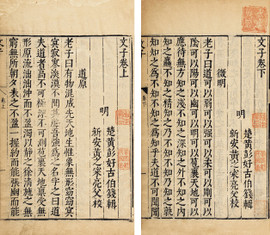 文子卷上
明
楚黃彭好古伯篯輯
新安黃之寀亮父校
道原
老子曰有物混成先天地生惟象無形窈窈
冥冥寂寥淡漠不聞其聲吾強為之名字之曰道
夫道者高不可極深不可測苞裹天地稟受無
形原流泏泏沖而不盈濁以靜之徐清施之
無窮無所朝夕表之不盈一握約而能張幽而能
文子卷下
明
楚黃彭好古伯篯輯
新安黃之寀亮父校
微明
老子曰道可以弱可以強可以柔可以剛可以
陰可以陽可以幽可以明可以苞裹天地可以
應待無方知之淺不知之深知之外不知之內
知之麤不知之精知之乃不知不知乃知之孰
知知之為不知不知之為知乎夫道不可聞聞